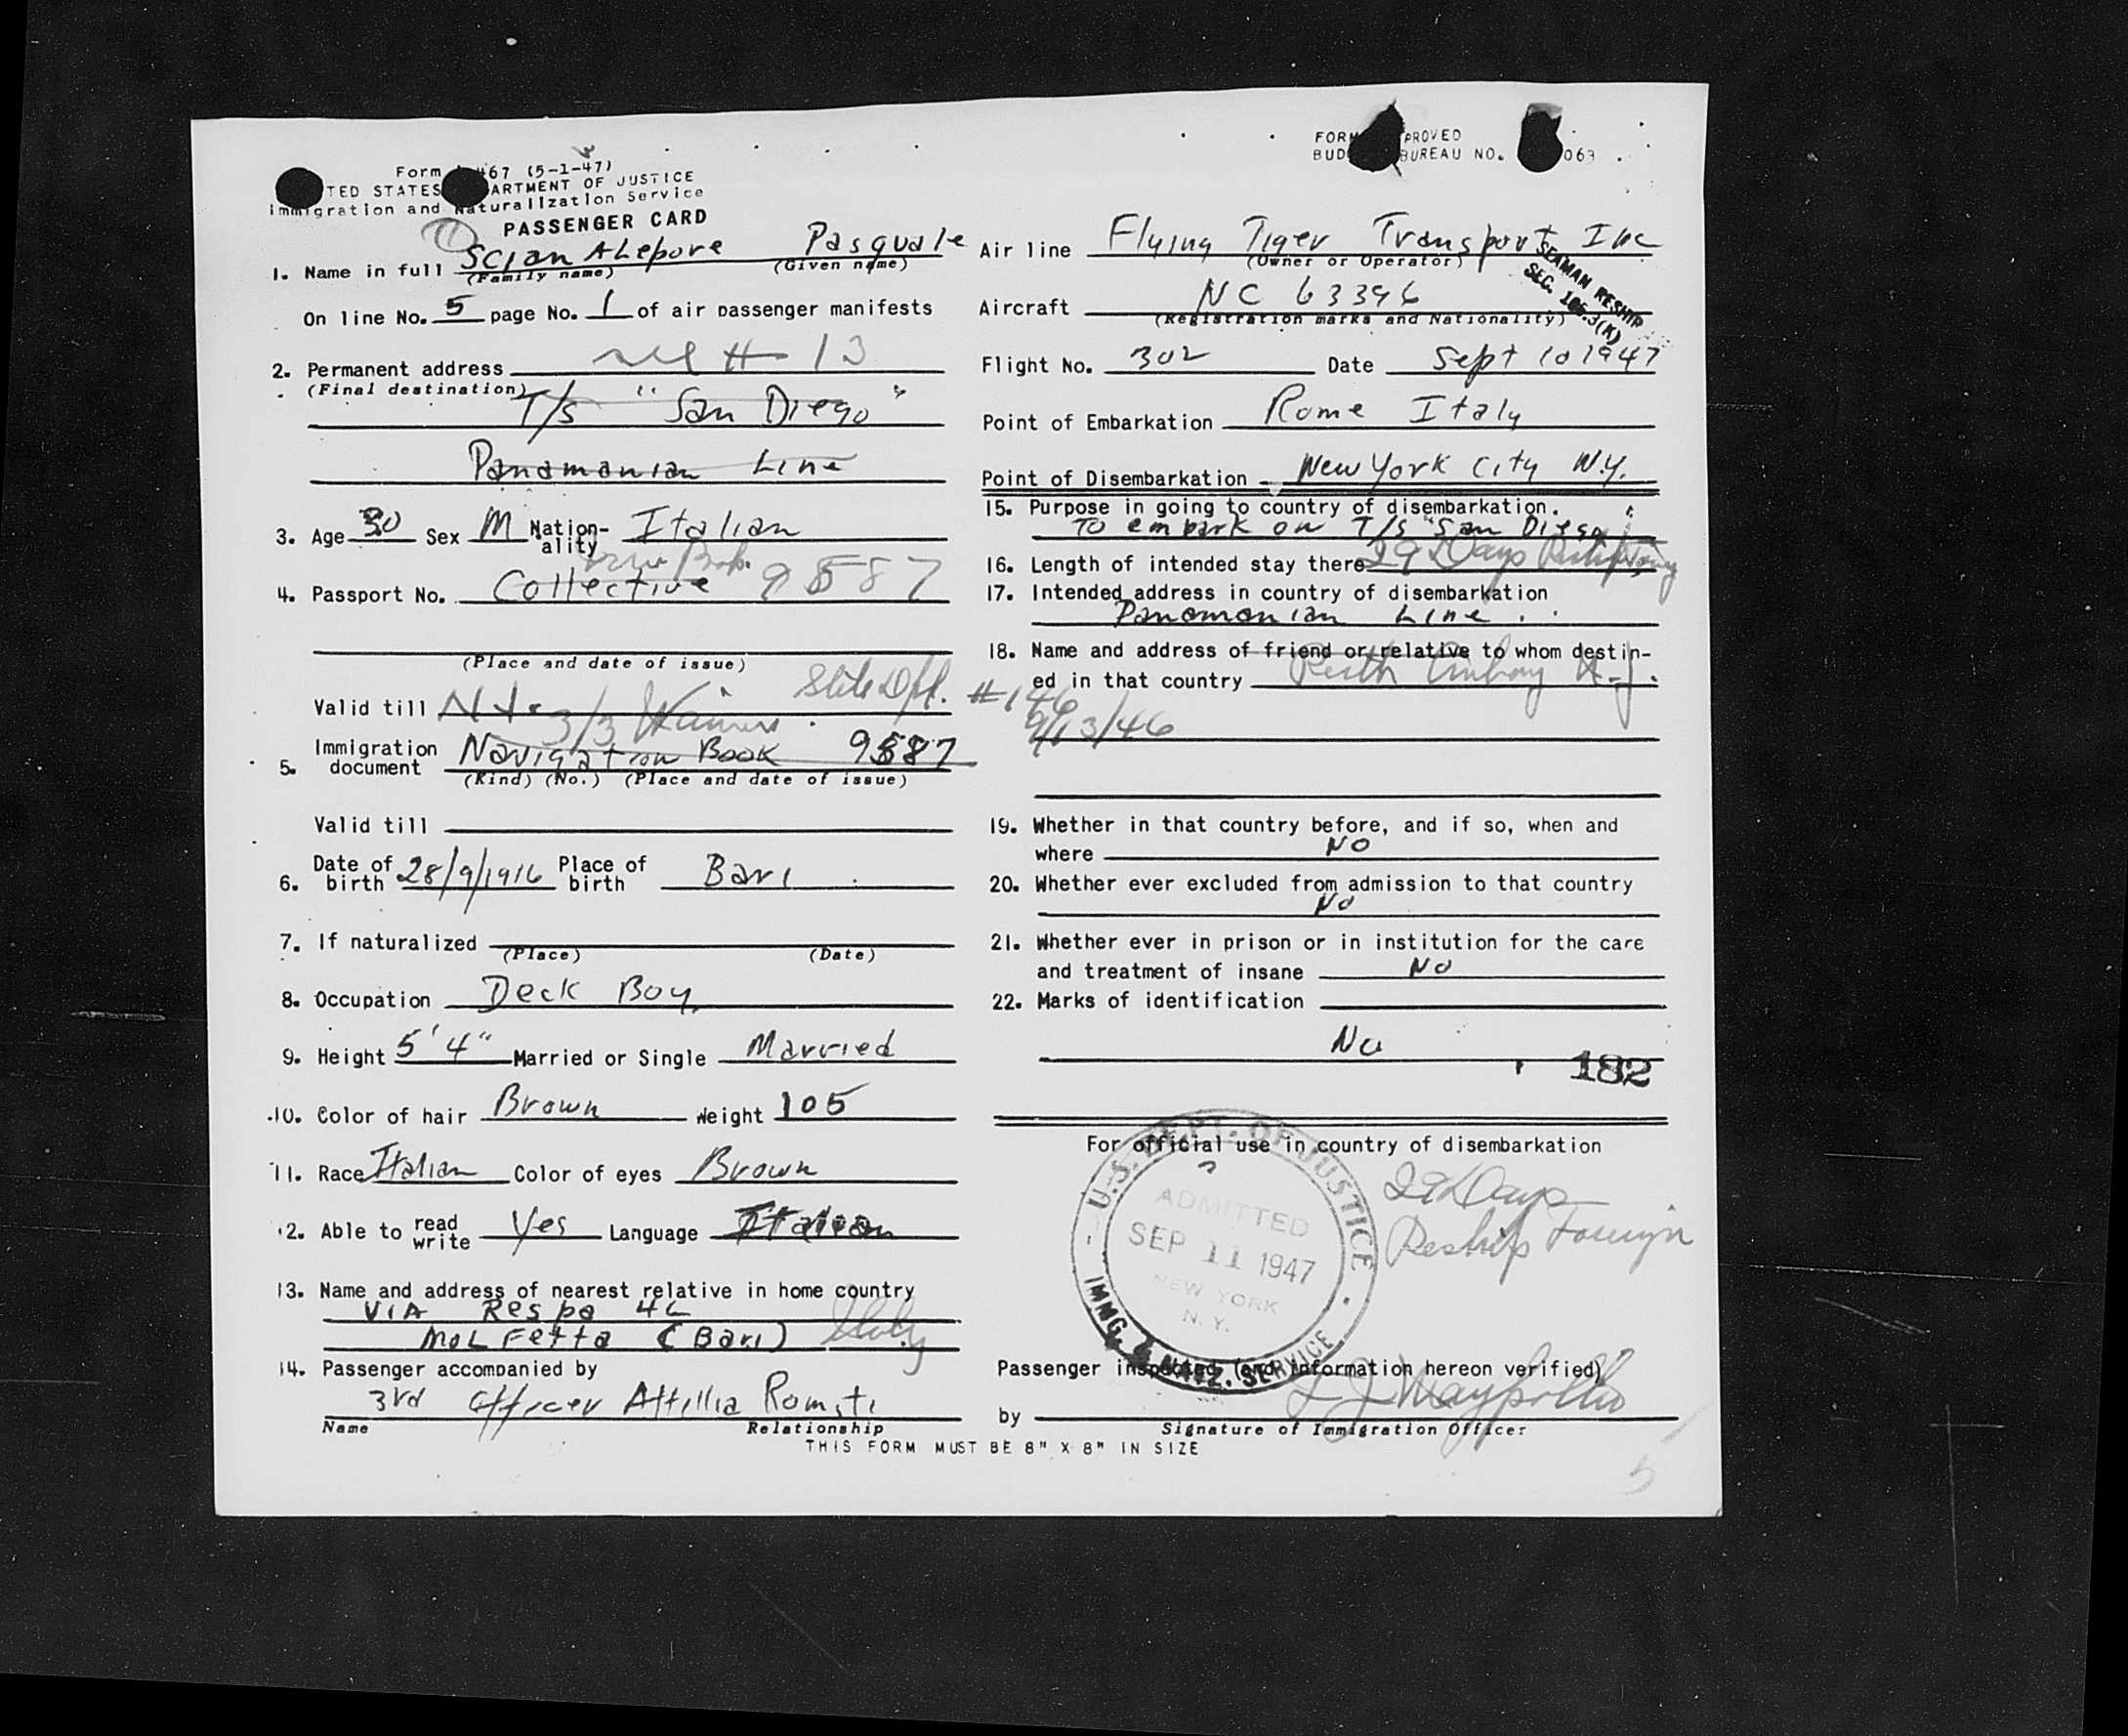 Form 67 (5-1-47)
TED STATES ARTMENT OF JUSTICE
Immigration and Naturalization Service
PASSENGER CARD
FORM PROVED
BUD BUREAU NO. 063
1. Name in full Scian Alepore Pasquale
(Family name) (Given name)
On line No. 5 page No. 1 of air passenger manifests
2. Permanent address # 13
(Final destination)
T/s "San Diego"
Panamanian Line
3. Age 30 Sex M Nation-ality Italian
4. Passport No. Collective 9587
(Place and date of issue)
State Dpt. #146
Valid till 3/3
9/13/46
5. Immigration document Navigation Book 9587
(Kind) (No.) (Place and date of issue)
Valid till
6. Date of birth 28/9/1916 Place of birth Bari
7. If naturalized
(Place) (Date)
8. Occupation Deck Boy
9. Height 5'4" Married or Single Married
10. Color of hair Brown Weight 105
11. Race Italian Color of eyes Brown
12. Able to read write Yes Language Italian
13. Name and address of nearest relative in home country
VIA Respa 42
Molfetta (Bari) Italy
14. Passenger accompanied by
3rd Officer Attilia Romiti
Name Relationship
Air line Flying Tiger Transport Inc
(Owner or Operator)
SEAMAN RESHIP
SEC. 105.3(K)
Aircraft NC 63396
(Registration marks and Nationality)
Flight No. 302 Date Sept 10 1947
Point of Embarkation Rome Italy
Point of Disembarkation New York City N.Y.
15. Purpose in going to country of disembarkation.
To embark on T/s "San Diego"
16. Length of intended stay there 29 Days Reship Foreign
17. Intended address in country of disembarkation
Panamanian Line
18. Name and address of friend or relative to whom destin-
ed in that country Perth Amboy N.J.
19. Whether in that country before, and if so, when and
where No
20. Whether ever excluded from admission to that country
No
21. Whether ever in prison or in institution for the care
and treatment of insane No
22. Marks of identification
No
182
For official use in country of disembarkation
U.S. DEPT. OF JUSTICE
ADMITTED
SEP 11 1947
NEW YORK
N. Y.
IMMG. & NATZ. SERVICE
29 Days
Reship Foreign
Passenger inspected (and information hereon verified)
by
Signature of Immigration Officer
THIS FORM MUST BE 8" X 8" IN SIZE
5